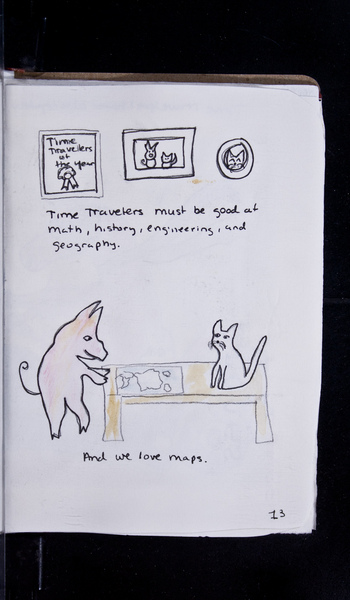 Time
Travellers
of
the Year
Time Travelers must be good at
math, history, engineering, and
geography.
And we love maps.
13